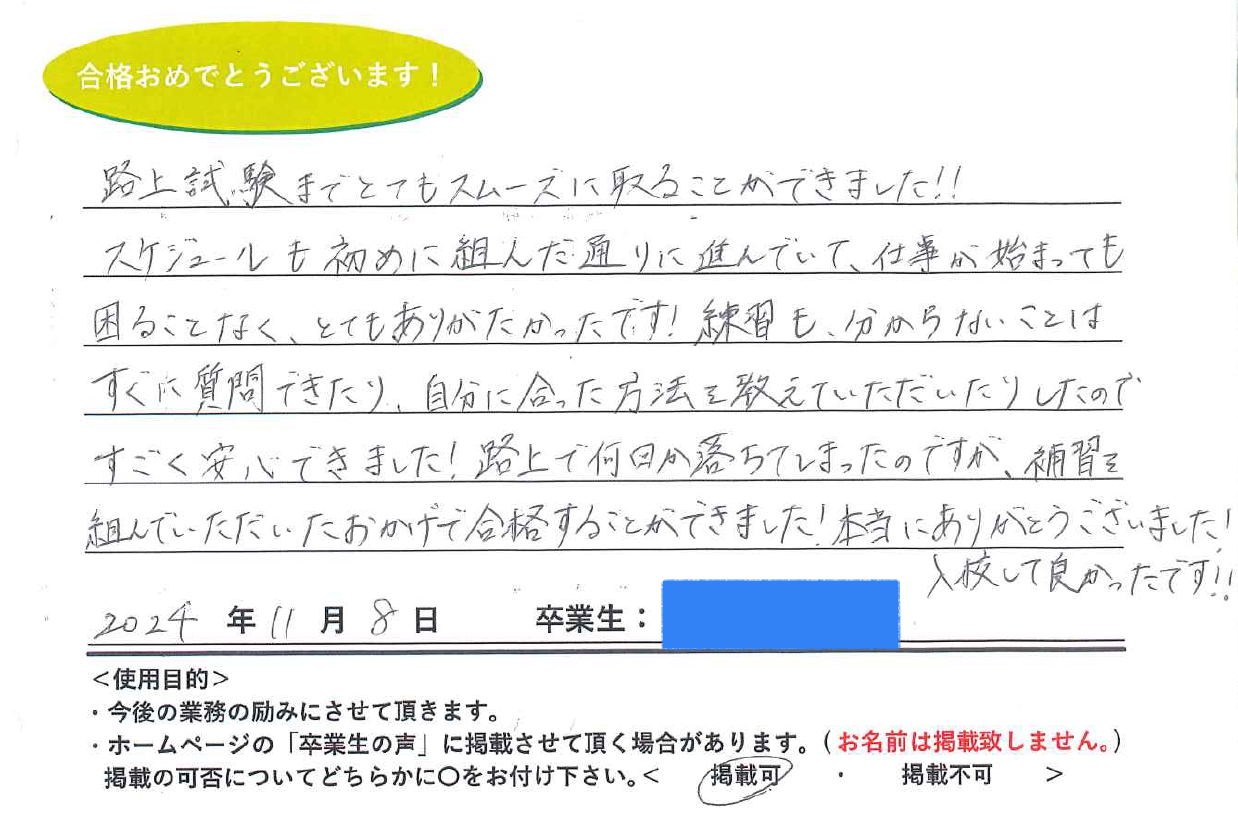 合格おめでとうございます!
路上試験までとてもスムーズに取ることができました!!
スケジュールも初めに組んだ通りに進んでいて、仕事が始まっても
困ることなく、とてもありがたかったです!練習も、分からないことは
すぐに質問できたり、自分に合った方法を教えていただいたりしたので
すごく安心できました!路上で何回か落ちてしまったのですが、補習を
組んでいただいたおかげで合格することができました!本当にありがとうございました!
入校して良かったです!!
2024年11月8日 卒業生:
<使用目的>
・今後の業務の励みにさせて頂きます。
・ホームページの「卒業生の声」に掲載させて頂く場合があります。(お名前は掲載致しません。)
掲載の可否についてどちらかに〇をお付け下さい。< 掲載可 ・ 掲載不可 >